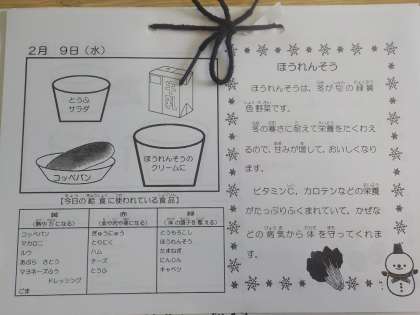 2月 9日(水)
とうふ
サラダ
ほうれんそうの
クリームに
コッペパン
【今日の給食に使われている食品】
黄 赤 緑
(熱や力になる) (血や肉や骨になる) (体の調子を整える)
コッペパン ぎゅうにゅう とうもろこし
マカロニ とりにく ほうれんそう
ルウ ハム たまねぎ
あぶら さとう チーズ にんじん
マヨネーズふう とうふ キャベツ
ドレッシング
ごま
ほうれんそう
ほうれんそうは、冬が旬の緑黄
色野菜です。
冬の寒さに耐えて栄養をたくわえ
るので、甘みが増して、おいしくなり
ます。
ビタミンC、カロテンなどの栄養
がたっぷりふくまれていて、かぜな
どの病気から体を守ってくれま
す。